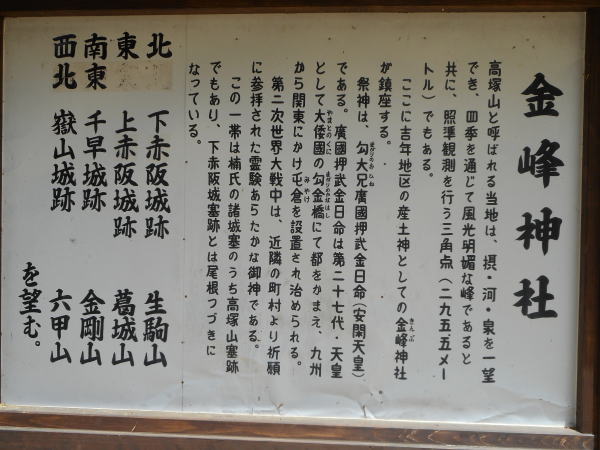 金峰神社
高塚山と呼ばれる当地は、摂・河・泉を一望
でき、四季を通じて風光明媚な峰であると
共に、照準観測を行う三角点(二九五五メー
トル)でもある。
ここに吉年地区の産土神としての金峰神社
きんぷ
が鎮座する。
祭神は、勾大兄廣國押武金日命(安閑天皇)
まがりのおひね
である。廣國押武金日命は第二十七代・天皇
として大倭國の勾金橋にて都をかまえ、九州
やまとのくに まがりのかなはし
から関東にかけ屯倉を設置され治められる。
みやけ
第二次世界大戦中は、近隣の町村より祈願
に参拝された霊験あらたかな御神である。
この一帯は楠氏の諸城塞のうち高塚山塞跡
でもあり、下赤阪城塞跡とは尾根つづきに
なっている。
北 下赤阪城跡 生駒山
東 上赤阪城跡 葛城山
南東 千早城跡 金剛山
西北 嶽山城跡 六甲山
を望む。